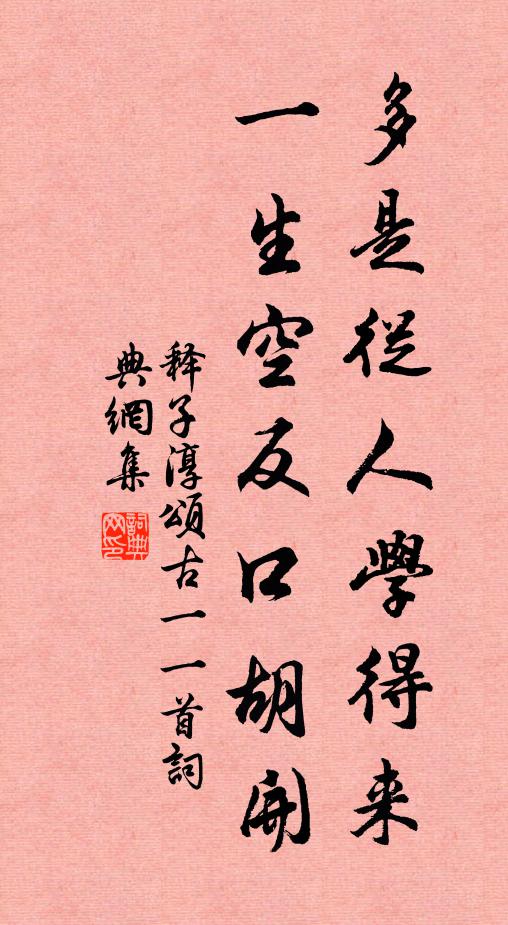 多是從人學得来
一生空反口胡開
释子淳頌古一一首詞
典網集
詞典
网印